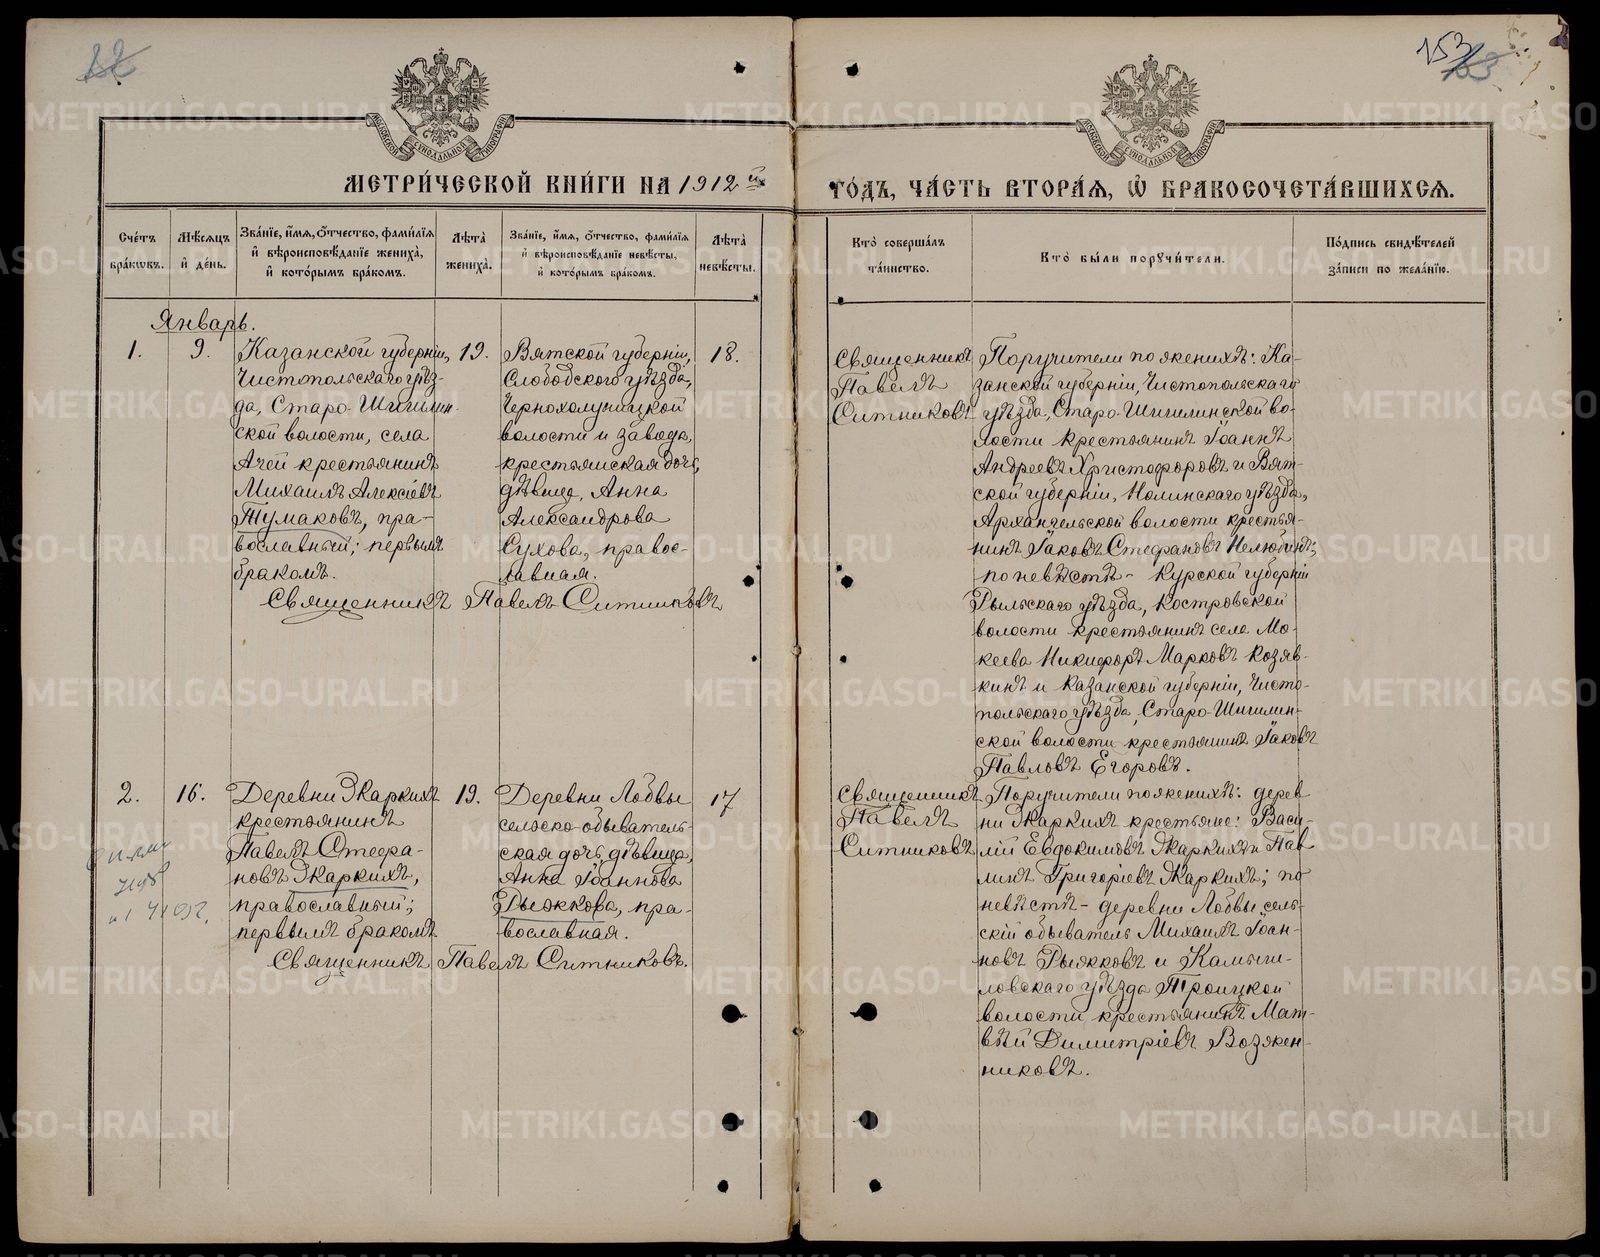 153
МЕТРИ́ЧЕСКОЙ КНИ́ГИ НА 1912 й
ГО́ДЪ, ЧА́СТЬ ВТОРА́Я, Ѡ҆ БРАКОСОЧЕТА́ВШИХСЯ.
Сче́тъ бра́кѡвъ.
Мѣ́сяцъ и҆ де́нь.
Зва́нїе, и҆́мя, о҆́тчество, фамѝлїя и҆ вѣроисповѣ́данїе жениха̀, и҆ кото́рымъ бра́комъ.
Лѣ́та̀ жениха̀.
Зва́нїе, и҆́мя, о҆́тчество, фамѝлїя и҆ вѣроисповѣ́данїе невѣ́сты, и҆ кото́рымъ бра́комъ.
Лѣ́та̀ невѣ́сты.
Кто̀ соверша́лъ та́инство.
Кто̀ бы́ли порꙋчи́тели.
По́дпись свидѣ́телей за́писи по жела́нїю.
Январь.
1.
9.
Казанской губерніи,
Чистопольскаго уѣз-
да, Старо-Шигилин-
ской волости, села
Ачей крестьянинъ
Михаилъ Алексіевъ
Тумаковъ, пра-
вославный; первымъ
бракомъ.
19.
Вятской губерніи,
Слободского уѣзда,
Чернохолуницкой
волости и завода,
крестьянская дочь,
дѣвица, Анна
Александрова
Сухова, правос-
лавная.
18.
Священникъ Павелъ Ситниковъ
Священникъ
Павелъ
Ситниковъ
Поручители по женихѣ: Ка-
занской губерніи, Чистопольскаго
уѣзда, Старо-Шигилинской во-
лости крестьянинъ Іоаннъ
Андреевъ Христофоровъ и Вят-
ской губерніи, Нолинскаго уѣзда,
Архангельской волости крестья-
нинъ Іаковъ Стефановъ Нелюбинъ;
по невѣстѣ - Курской губерніи
Рыльскаго уѣзда, Костровской
волости крестьянинъ села Мо-
кеева Никифоръ Марковъ Козяв-
кинъ и Казанской губерніи, Чисто-
польскаго уѣзда, Старо-Шигилин-
ской волости крестьянинъ Іаковъ
Павловъ Егоровъ.
2.
16.
Деревни Жаркихъ
крестьянинъ
Павелъ Стефа-
новъ Жаркихъ,
православный;
первымъ бракомъ
19.
Деревни Лобвы
сельско-обыватель-
ская дочь, дѣвица,
Анна Іоаннова
Рыжкова, пра-
вославная.
17
Священникъ Павелъ Ситниковъ.
Священникъ
Павелъ
Ситниковъ
Поручители по женихѣ: дерев
ни Жаркихъ крестьяне: Васи-
лій Евдокимовъ Жаркихъ и Пав
линъ Григоріевъ Жаркихъ; по
невѣстѣ - деревни Лобвы сель-
скій обыватель Михаилъ Іоан-
новъ Рыжковъ и Камыш-
ловскаго уѣзда Троицкой
волости крестьянинъ Мат-
вѣй Димитріевъ Возжен-
никовъ.
METRIKI.GASO-URAL.RU